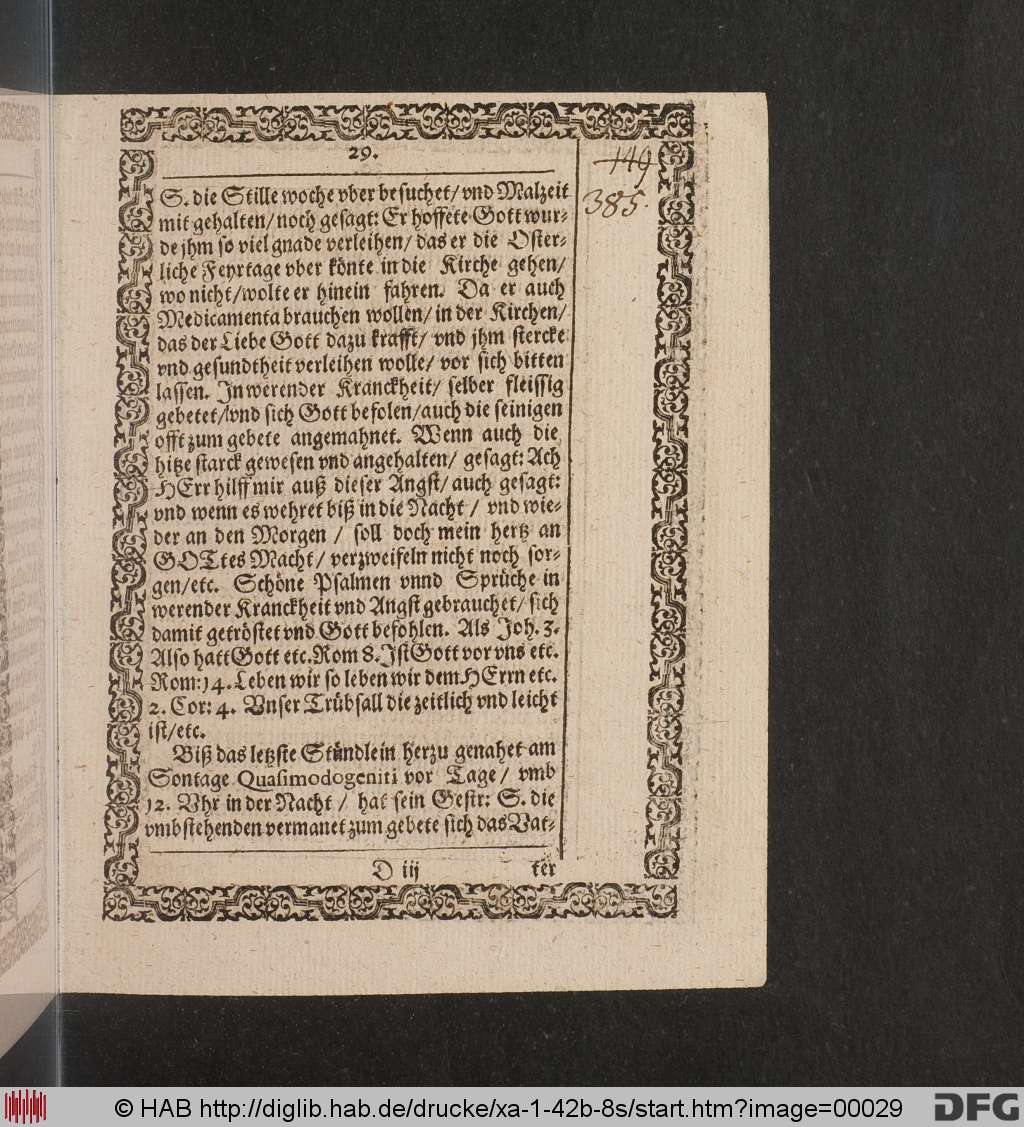 29.
149
385.
S. die Stille woche vber besuchet/ vnd Malzeit
mit gehalten/ noch gesagt: Er hoffete Gott wur-
de jhm so viel gnade verleihen/ das er die Oster-
liche Feyrtage vber könte in die Kirche gehen/
wo nicht/ wolte er hinein fahren. Da er auch
Medicamenta brauchen wollen/ in der Kirchen/
das der Liebe Gott dazu krafft/ vnd jhm stercke
vnd gesundtheit verleihen wolle/ vor sich bitten
lassen. In werender Kranckheit/ selber fleissig
gebetet/ vnd sich Gott befolen/ auch die seinigen
offt zum gebete angemahnet. Wenn auch die
hitze starck gewesen vnd angehalten/ gesagt: Ach
HErr hilff mir auß dieser Angst/ auch gesagt:
vnd wenn es wehret biß in die Nacht / vnd wie-
der an den Morgen / soll doch mein hertz an
GOTtes Macht/ verzweifeln nicht noch sor-
gen/etc. Schöne Psalmen vnnd Sprüche in
werender Kranckheit vnd Angst gebrauchet/ sich
damit getröstet vnd Gott befohlen. Als Joh. 3.
Also hatt Gott etc. Rom 8. Ist Gott vor vns etc.
Rom: 14. Leben wir so leben wir dem HErrn etc.
2. Cor: 4. Vnser Trübsall die zeitlich vnd leicht
ist/etc.
Biß das letzste Stündlein herzu genahet am
Sontage Quasimodogeniti vor Tage/ vmb
12. Vhr in der Nacht / hat sein Gestr: S. die
vmbstehenden vermanet zum gebete sich das Vat-
D iij ter
© HAB http://diglib.hab.de/drucke/xa-1-42b-8s/start.htm?image=00029
DFG